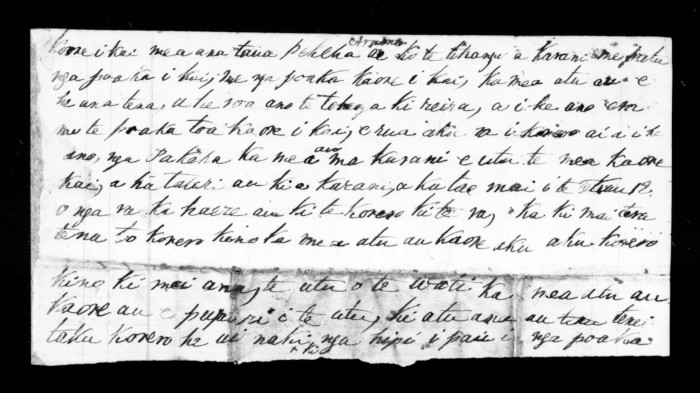 kaore i kai mea ana taua Pakeha ae ko te tikanga a Karani me patu
nga poaka i kai, me nga poaka kaore i kai, ka mea atu au e
he ana tena, a he roa ano te tonga ki reira, a i he ano
mo te poaka toa kaore i kai, e rua aku ra i korero ai a i he
ano, nga Pakeha ka mea au ma Karani e utu te mea kaore
kai, a ka tatari au ki a Karani, a ka tae mai i te 12
o nga ra ka haere au ki te korero ki te ra, ka ki mai tera
tena to korero kino ka mea atu au kaore aku korero
kino ki mai ana, te utu o te wati ka mea atu au
kaore au e pupuri i te utu, ki atu ana au tenei
taku korero he ui naku ki nga hipi i pau i nga poaka